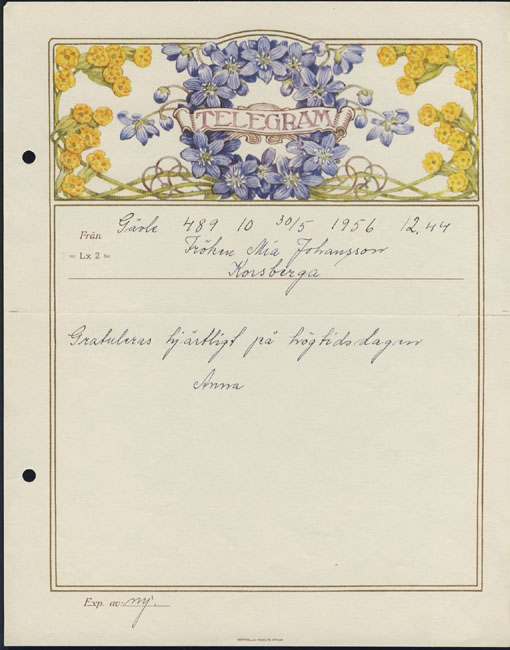 TELEGRAM
Från Gävle 489 10 30/5 1956 12.44
= Lx 2 = Fröken Mia Johansson
Korsberga
Gratuleras hjärtligt på högtidsdagen
Anna
Exp. av: nj.